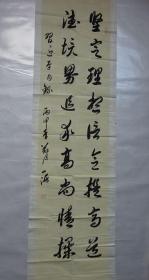 坚定理想信念提高道
德境界追求高尚情操
习近平句录 丙申年